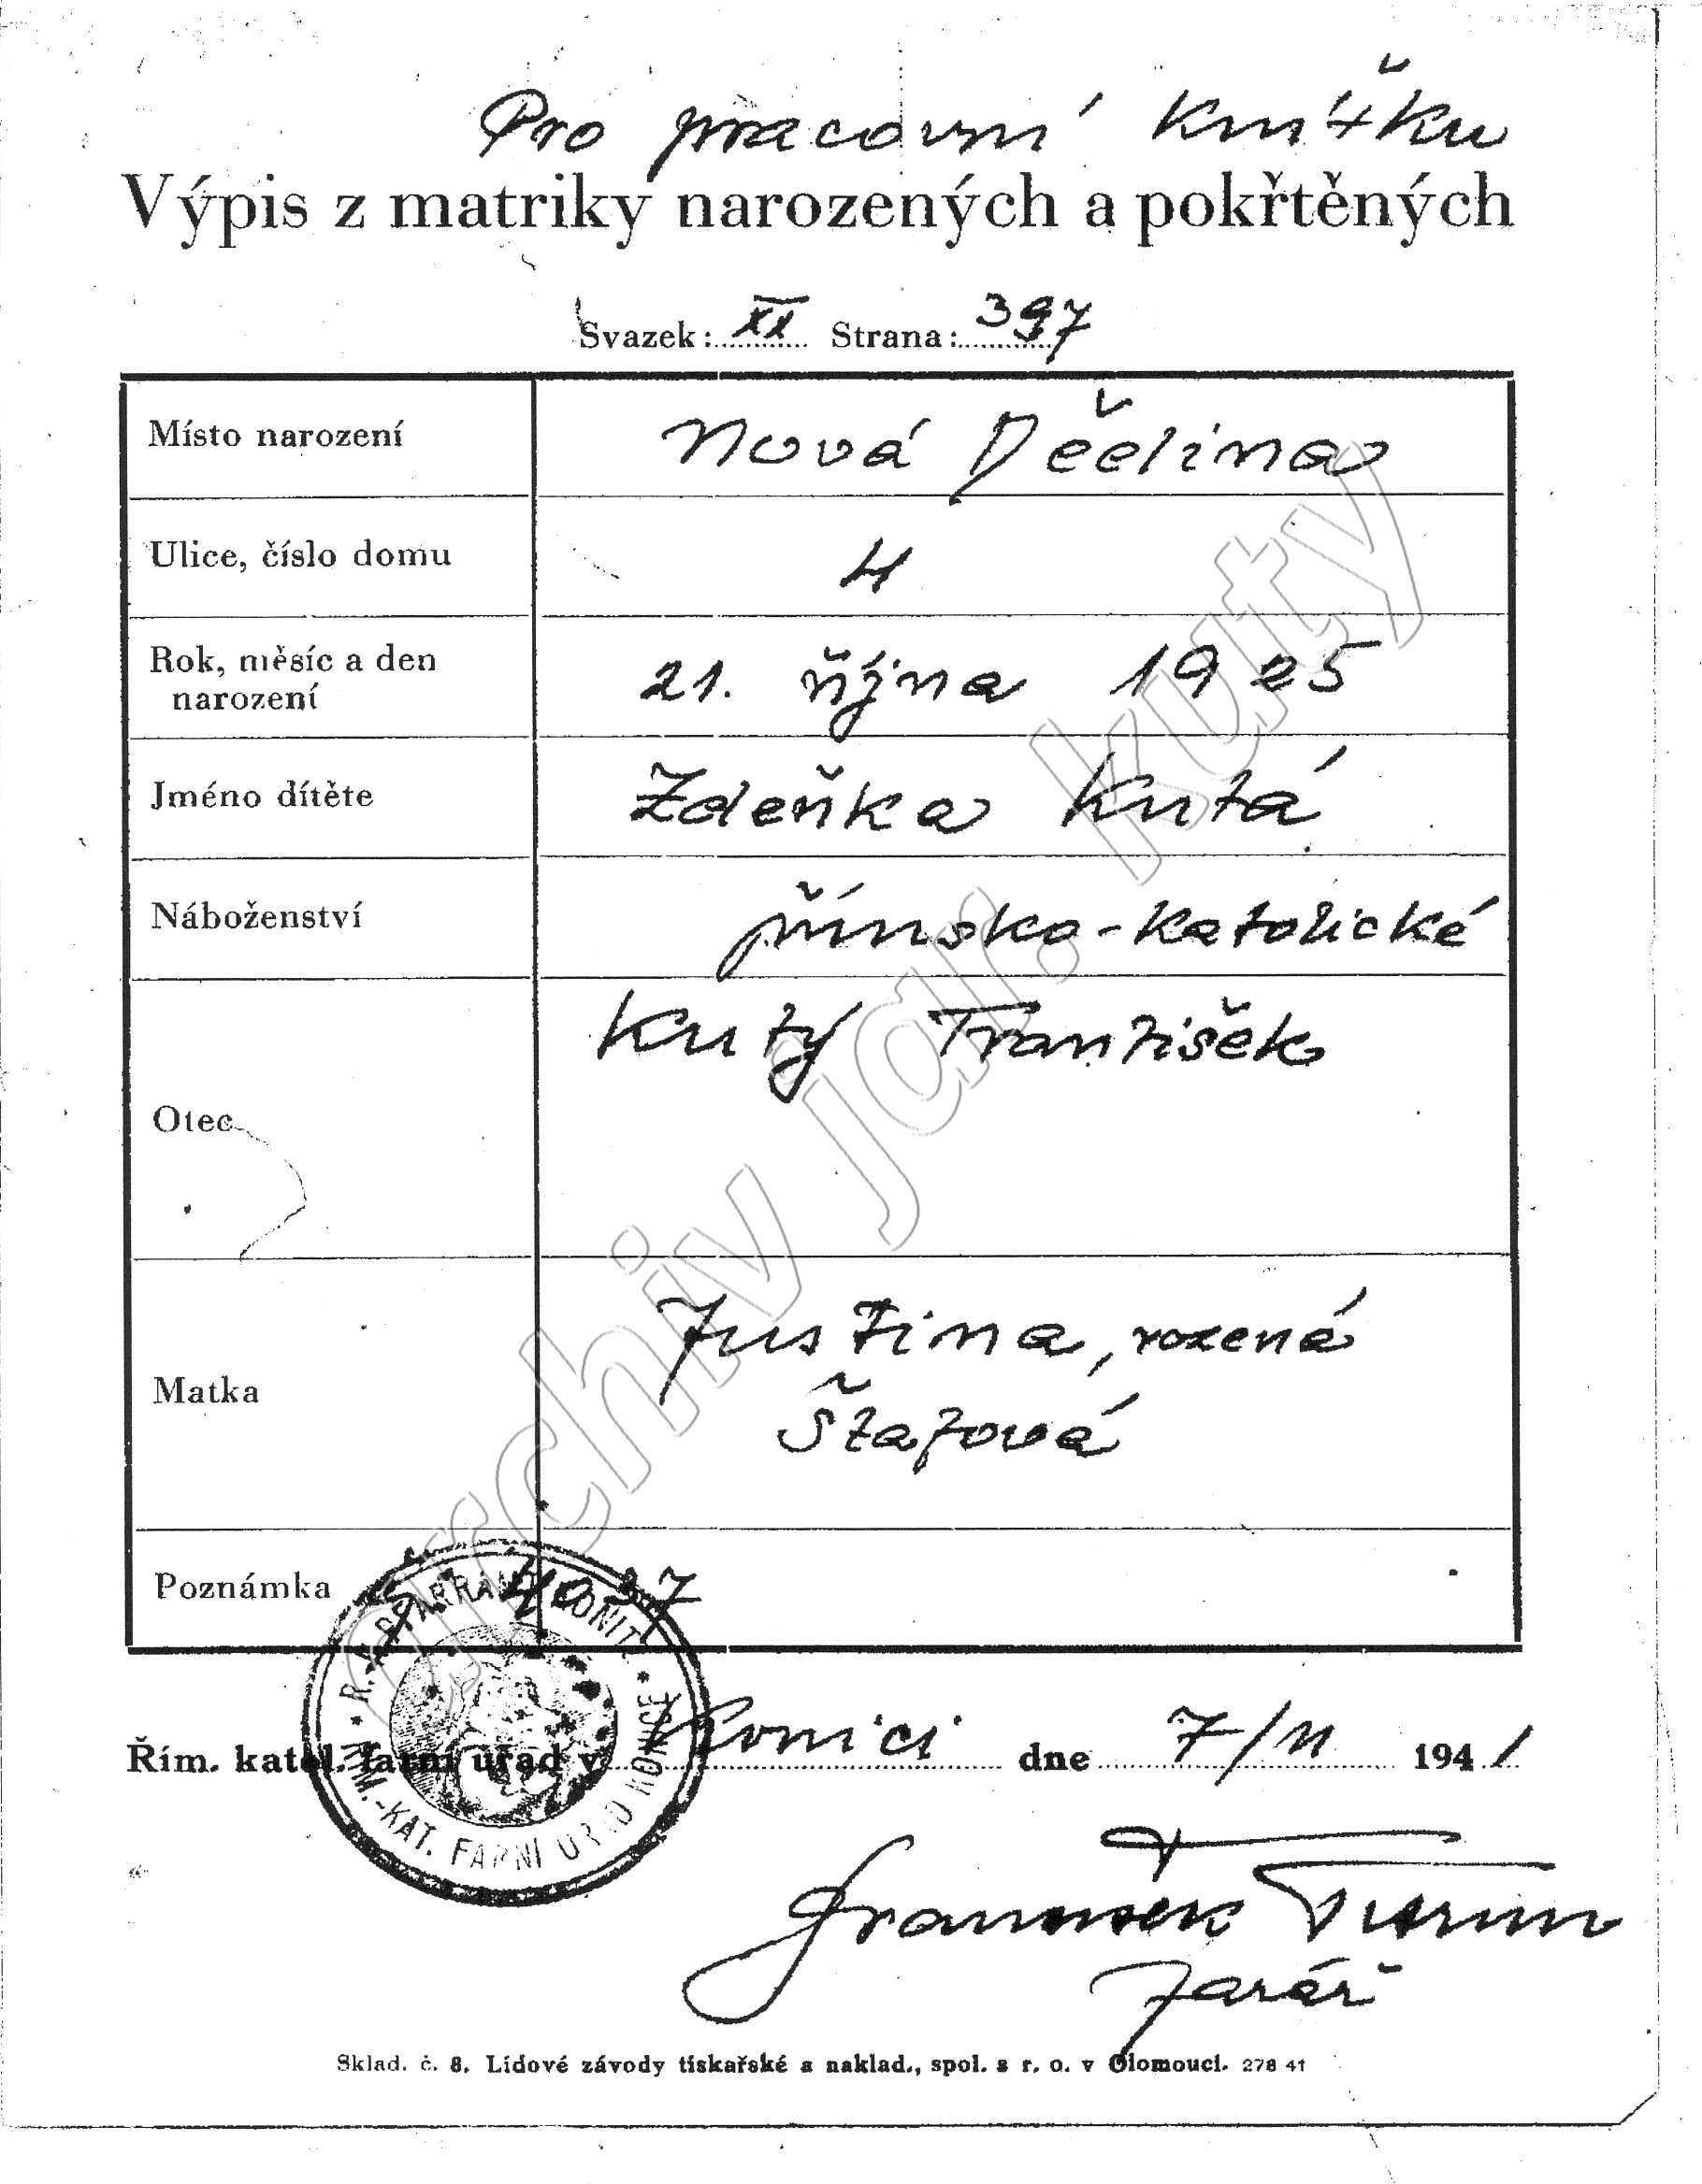 Pro pracovní knížku
Výpis z matriky narozených a pokřtěných
Svazek: XI Strana: 397
Místo narození Nová Děčlina
Ulice, číslo domu 4
Rok, měsíc a den
narození
21. října 1925
Jméno dítěte Zdeňka Kutá
Náboženství římsko-katolické
Otec Kutý František
Matka Justina, rozená
Štafová
Poznámka 4037
R. K. PFARRAMT KONITZ
ŘÍM.-KAT. FARNÍ ÚŘAD KONICE
Řím. katol. farní úřad v Konici dne 7/11 1941
František
farář
Sklad. č. 8. Lidové závody tiskařské a naklad., spol. s r. o. v Olomouci. 278 41
archiv jar. kuty